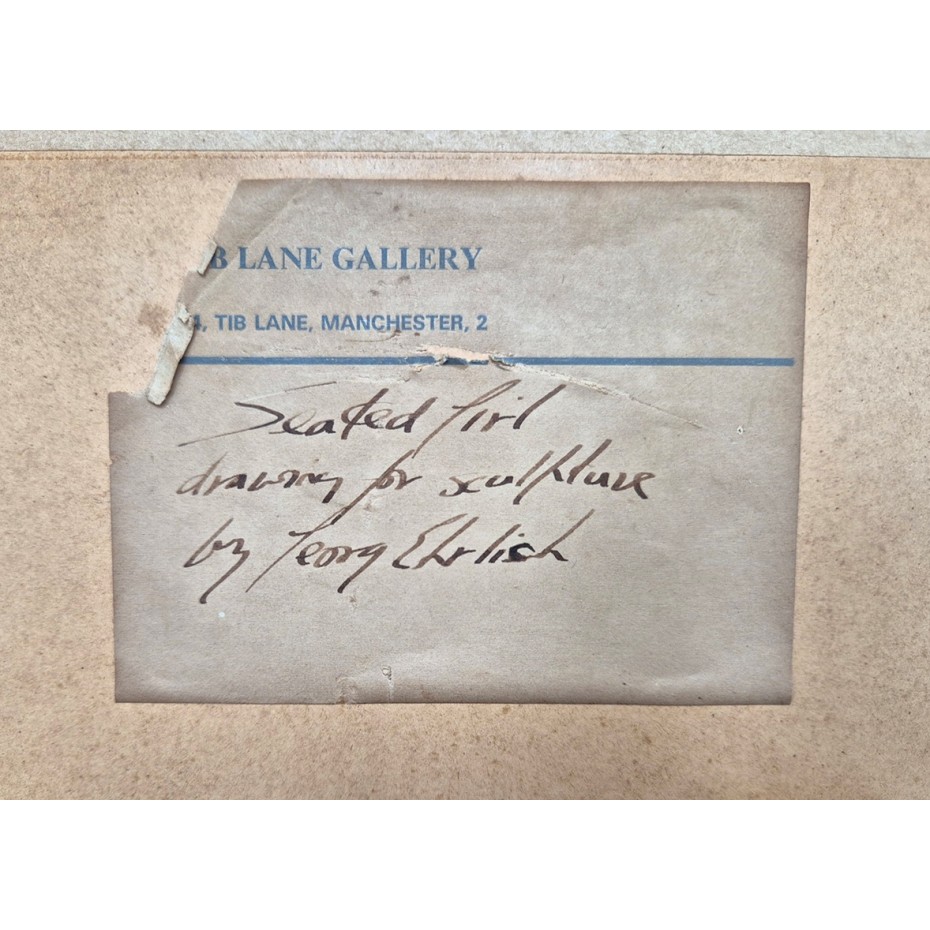 B LANE GALLERY
4, TIB LANE, MANCHESTER, 2
Seated Girl
drawing for sculpture
by Georg Ehrlich